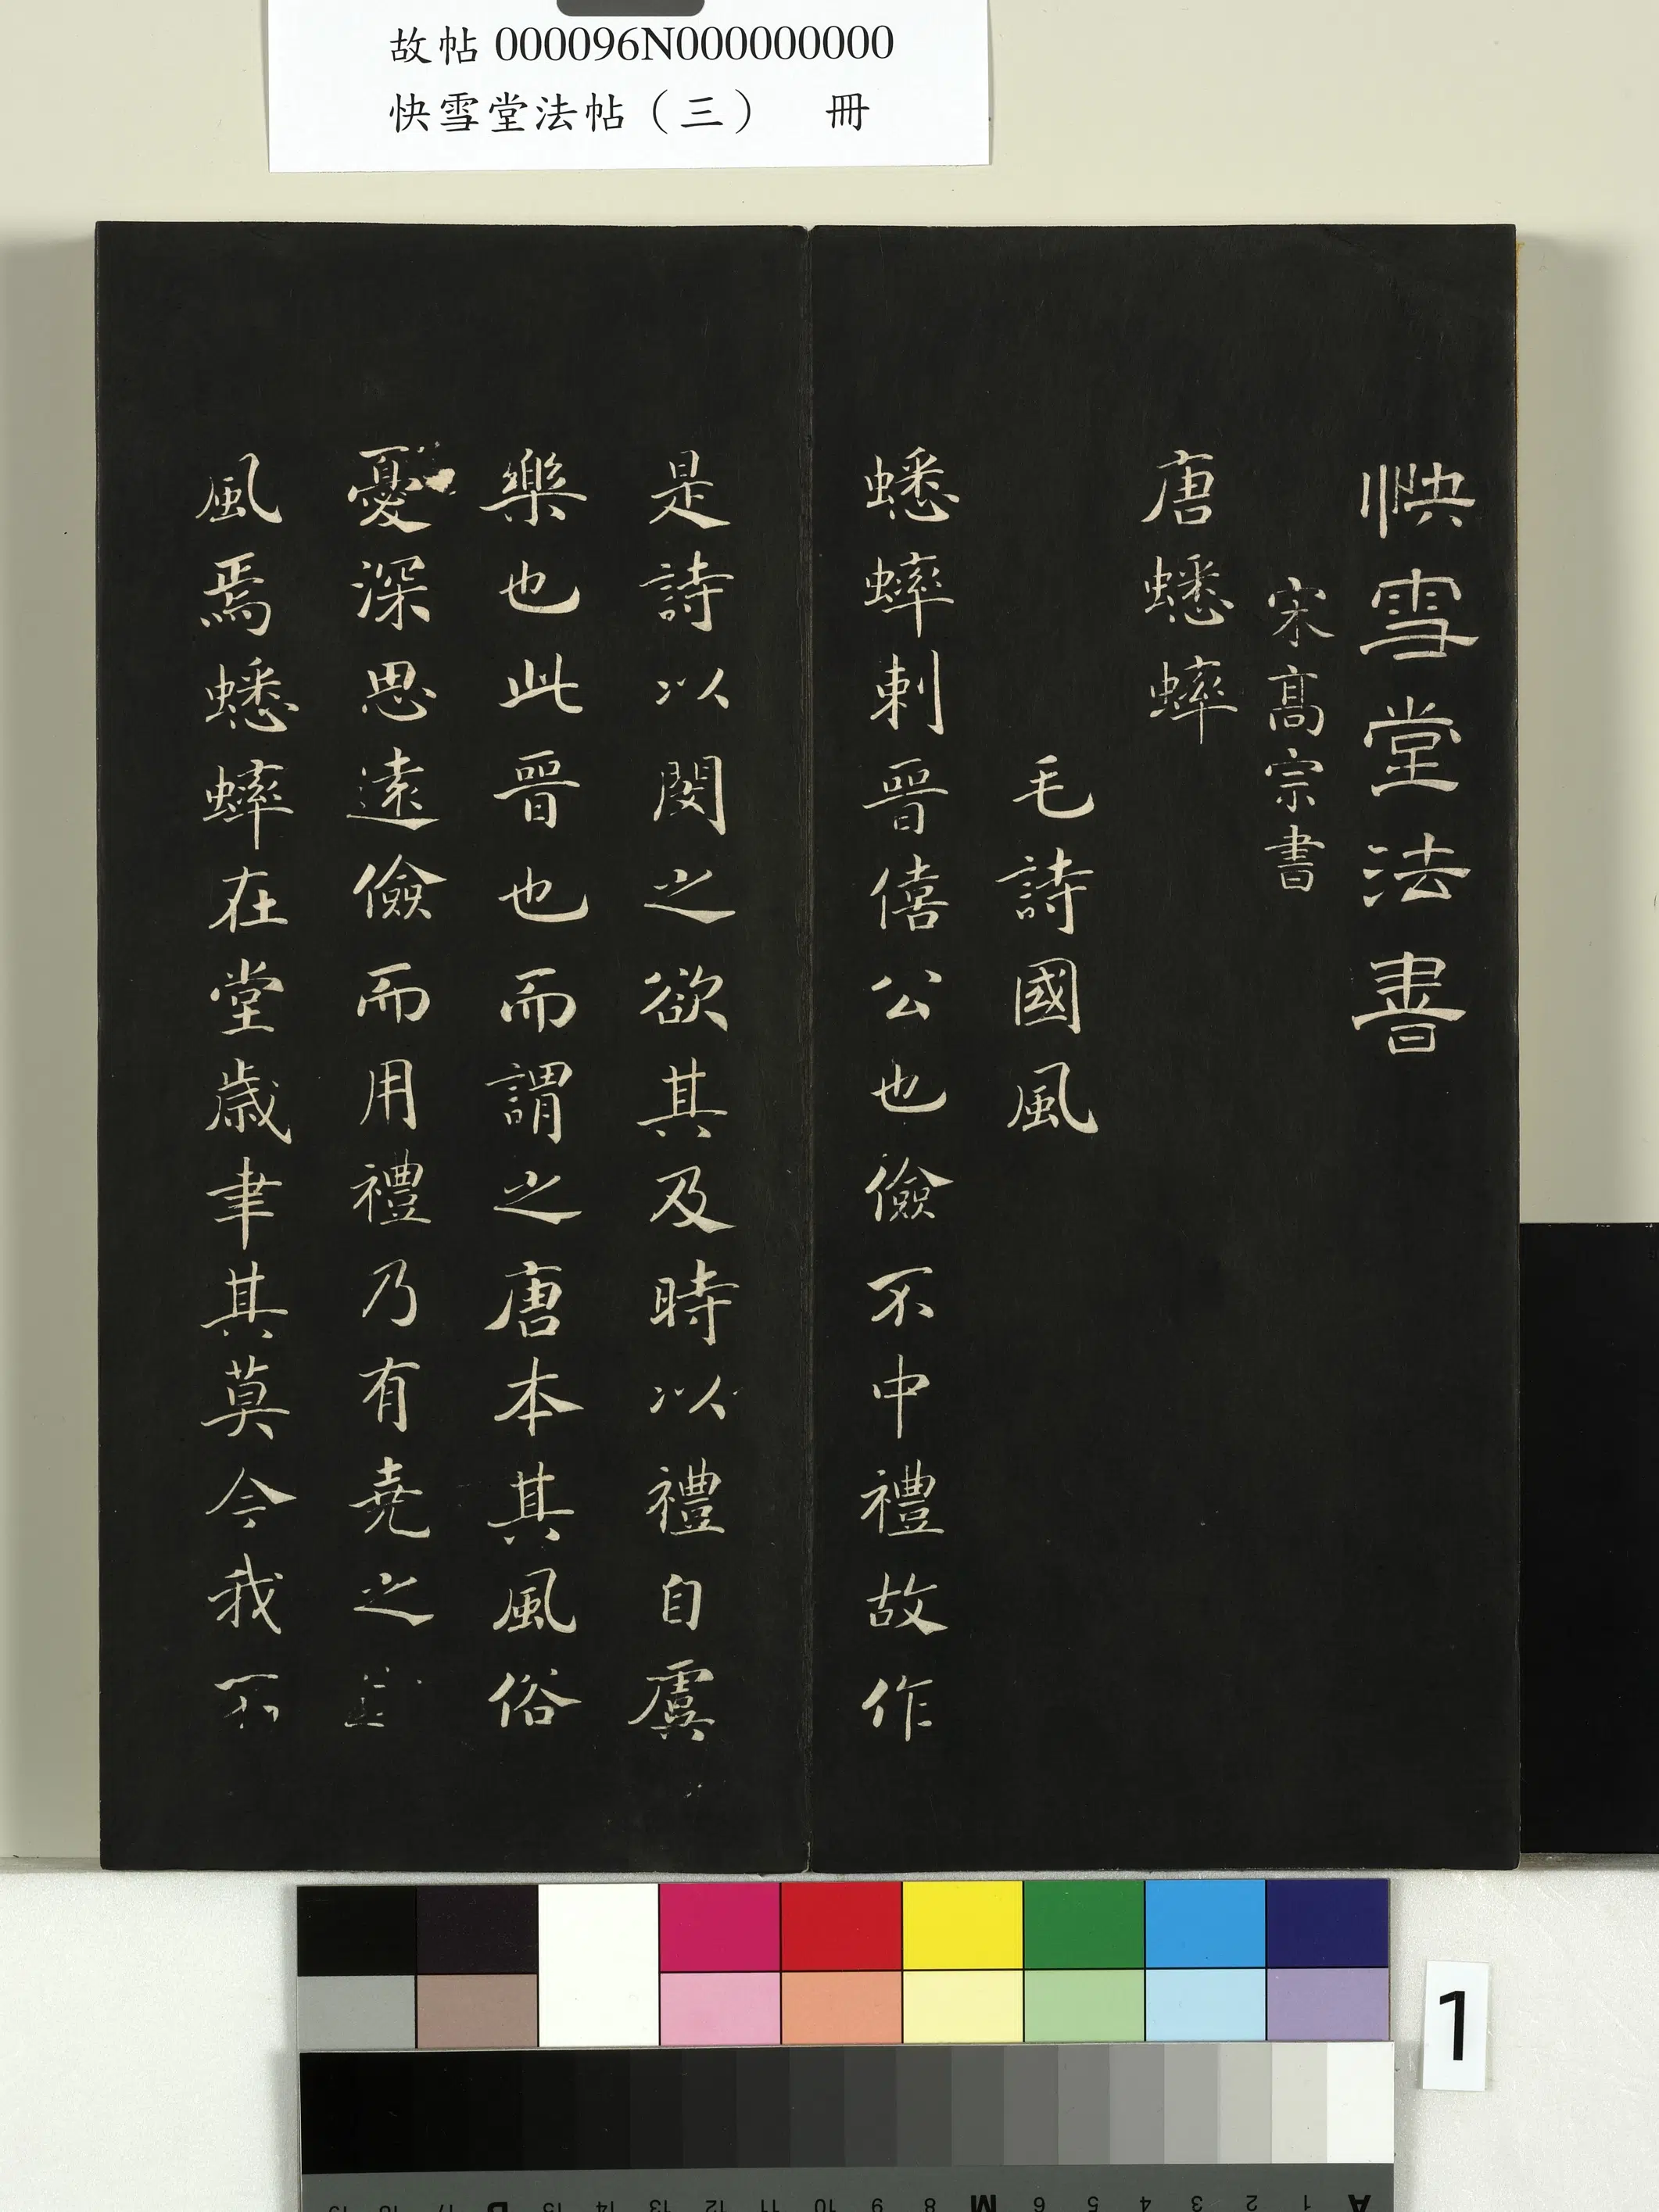 故帖 000096N000000000
快雪堂法帖（三） 冊
快雪堂法書
宋髙宗書
唐蟋蟀
毛詩國風
蟋蟀刺晉僖公也儉不中禮故作
是詩以閔之欲其及時以禮自虞
樂也此晉也而謂之唐本其風俗
憂深思遠儉而用禮乃有堯之
風焉蟋蟀在堂歳聿其莫今我不
1
A 1 2 3 4 5 6 M 8 9 10 11 12 13 14 15 B 17 18 19